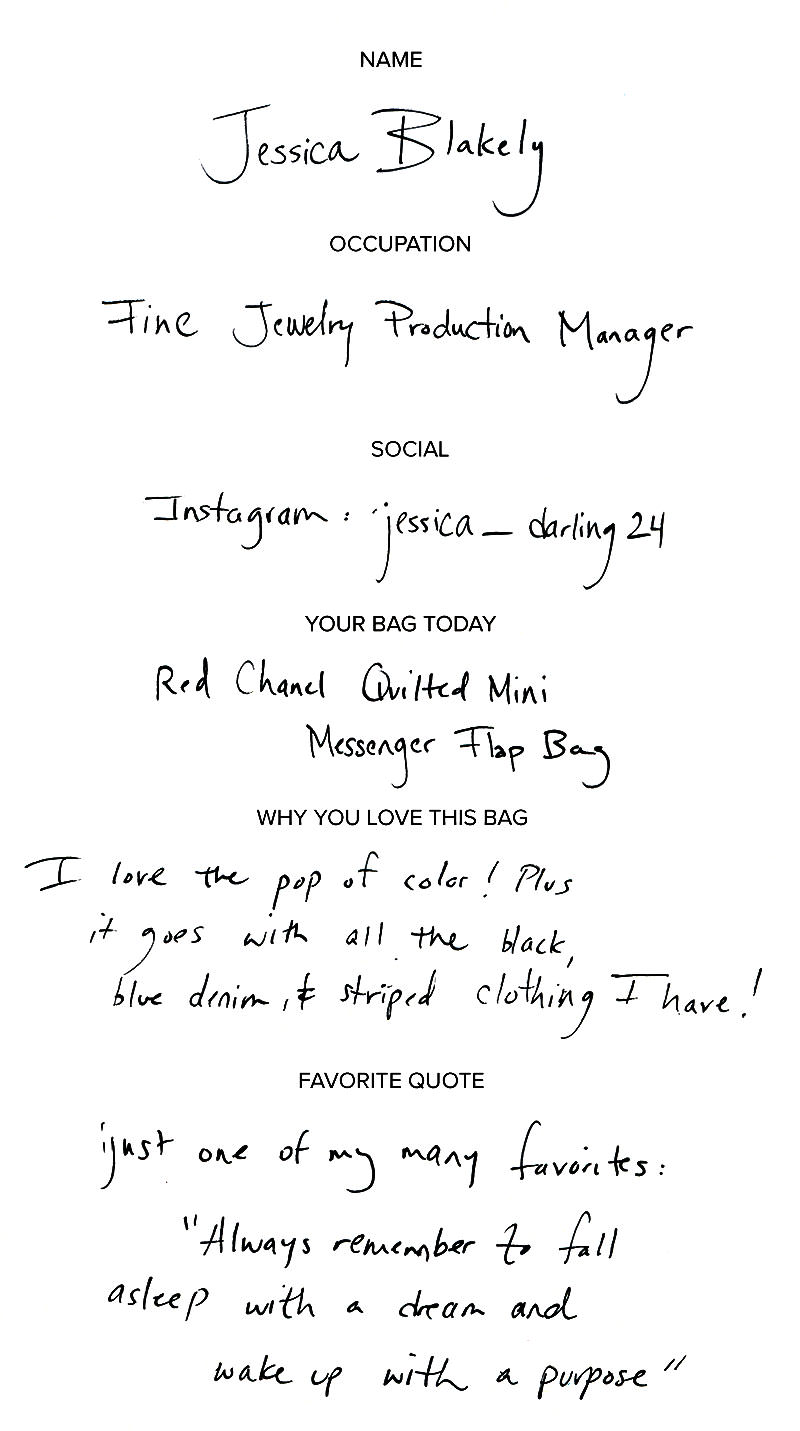 NAME
Jessica Blakely
OCCUPATION
Fine Jewelry Production Manager
SOCIAL
Instagram: jessica_darling24
YOUR BAG TODAY
Red Chanel Quilted Mini
Messenger Flap Bag
WHY YOU LOVE THIS BAG
I love the pop of color! Plus
it goes with all the black,
blue denim, & striped clothing I have!
FAVORITE QUOTE
just one of my many favorites:
"Always remember to fall
asleep with a dream and
wake up with a purpose"